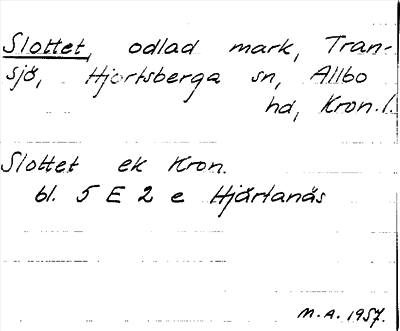 Slottet, odlad mark, Tran-
sjö, Hjortsberga sn, Allbo
hd, Kron.l.
Slottet ek Kron.
bl. 5 E 2 e Hjärtanäs
M.A. 1957.